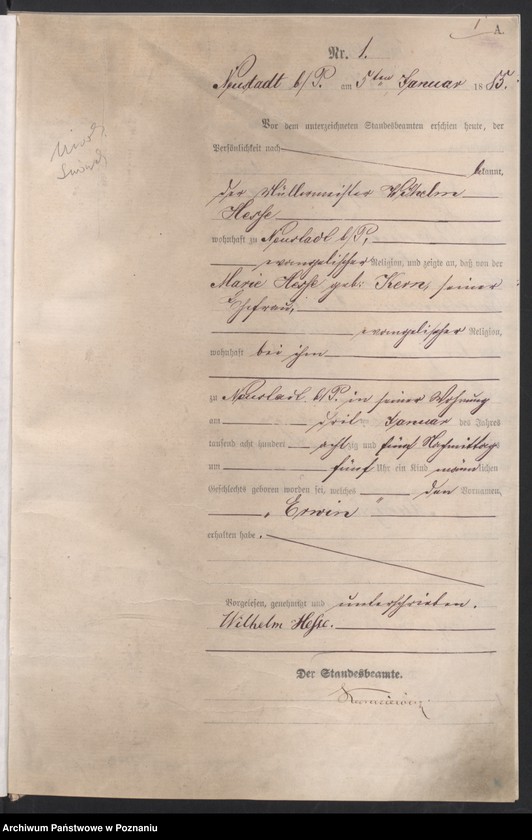 1
A.
Nr. 1.
Neustadt b/P. am 5ten Januar 1885.
Vor dem unterzeichneten Standesbeamten erschien heute, der
Persönlichkeit nach
bekannt,
der Müllermeister Wilhelm
Hesse
wohnhaft zu Neustadt b/P.,
evangelischer Religion, und zeigte an, daß von der
Marie Hesse geb. Kern, seiner
Ehefrau,
evangelischer Religion,
wohnhaft bei ihm
zu Neustadt b/P. in seiner Wohnung
am Januar des Jahres
tausend acht hundert achtzig und fünf Nachmittag
um fünf Uhr ein Kind männlichen
Geschlechts geboren worden sei, welches den Vornamen,
„Erwin"
erhalten habe.
Vorgelesen, genehmigt und unterschrieben.
Wilhelm Hesse.
Der Standesbeamte.
Archiwum Państwowe w Poznaniu